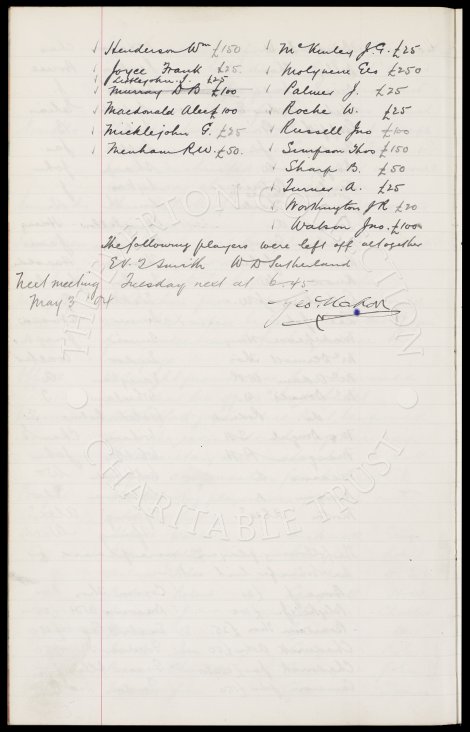 Henderson Wm £150
Joyce Frank £25
Littlejohn J. £25
Murray D B £100
Macdonald Alec £100
Micklejohn G. £25
Menham R.W. £50.
McKinley J.G. £25
Molyneux Geo £250
Palmer J. £25
Roche W. £25
Russell Jno £100
Simpson Thos £150
Sharp B. £50
Turner A. £25
Worthington J R £20
Watson Jno. £100
The following players were left off altogether
E V. Smith W D Sutherland
Next meeting Tuesday next at 6.45
May 3 '04
Geo. Mahon
THE EVERTON COLLECTION
CHARITABLE TRUST